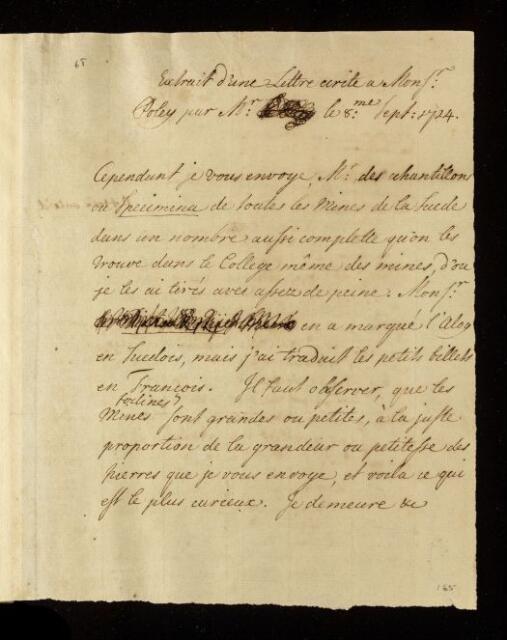 65
Extrait d'une Lettre ecrite a Mons.r
Poley par M.r le 8.me Sept: 1724.
Cependant je vous envoye, M.r des echantillons
ou Specimina de toutes les Mines de la Suede
dans un nombre aussi complette qu'on les
trouve dans le College même des mines, d'ou
je les ai tirés avec assez de peine. Mons.r
en a marqué l'Alog
en Suedois, mais j'ai traduit les petits billets
en Francois. Il faut observer, que les
Mines sont grandes ou petites, à la juste
proportion de la grandeur ou petitesse des
pierres que je vous envoye, et voila ce qui
est le plus curieux. Je demeure &c
185